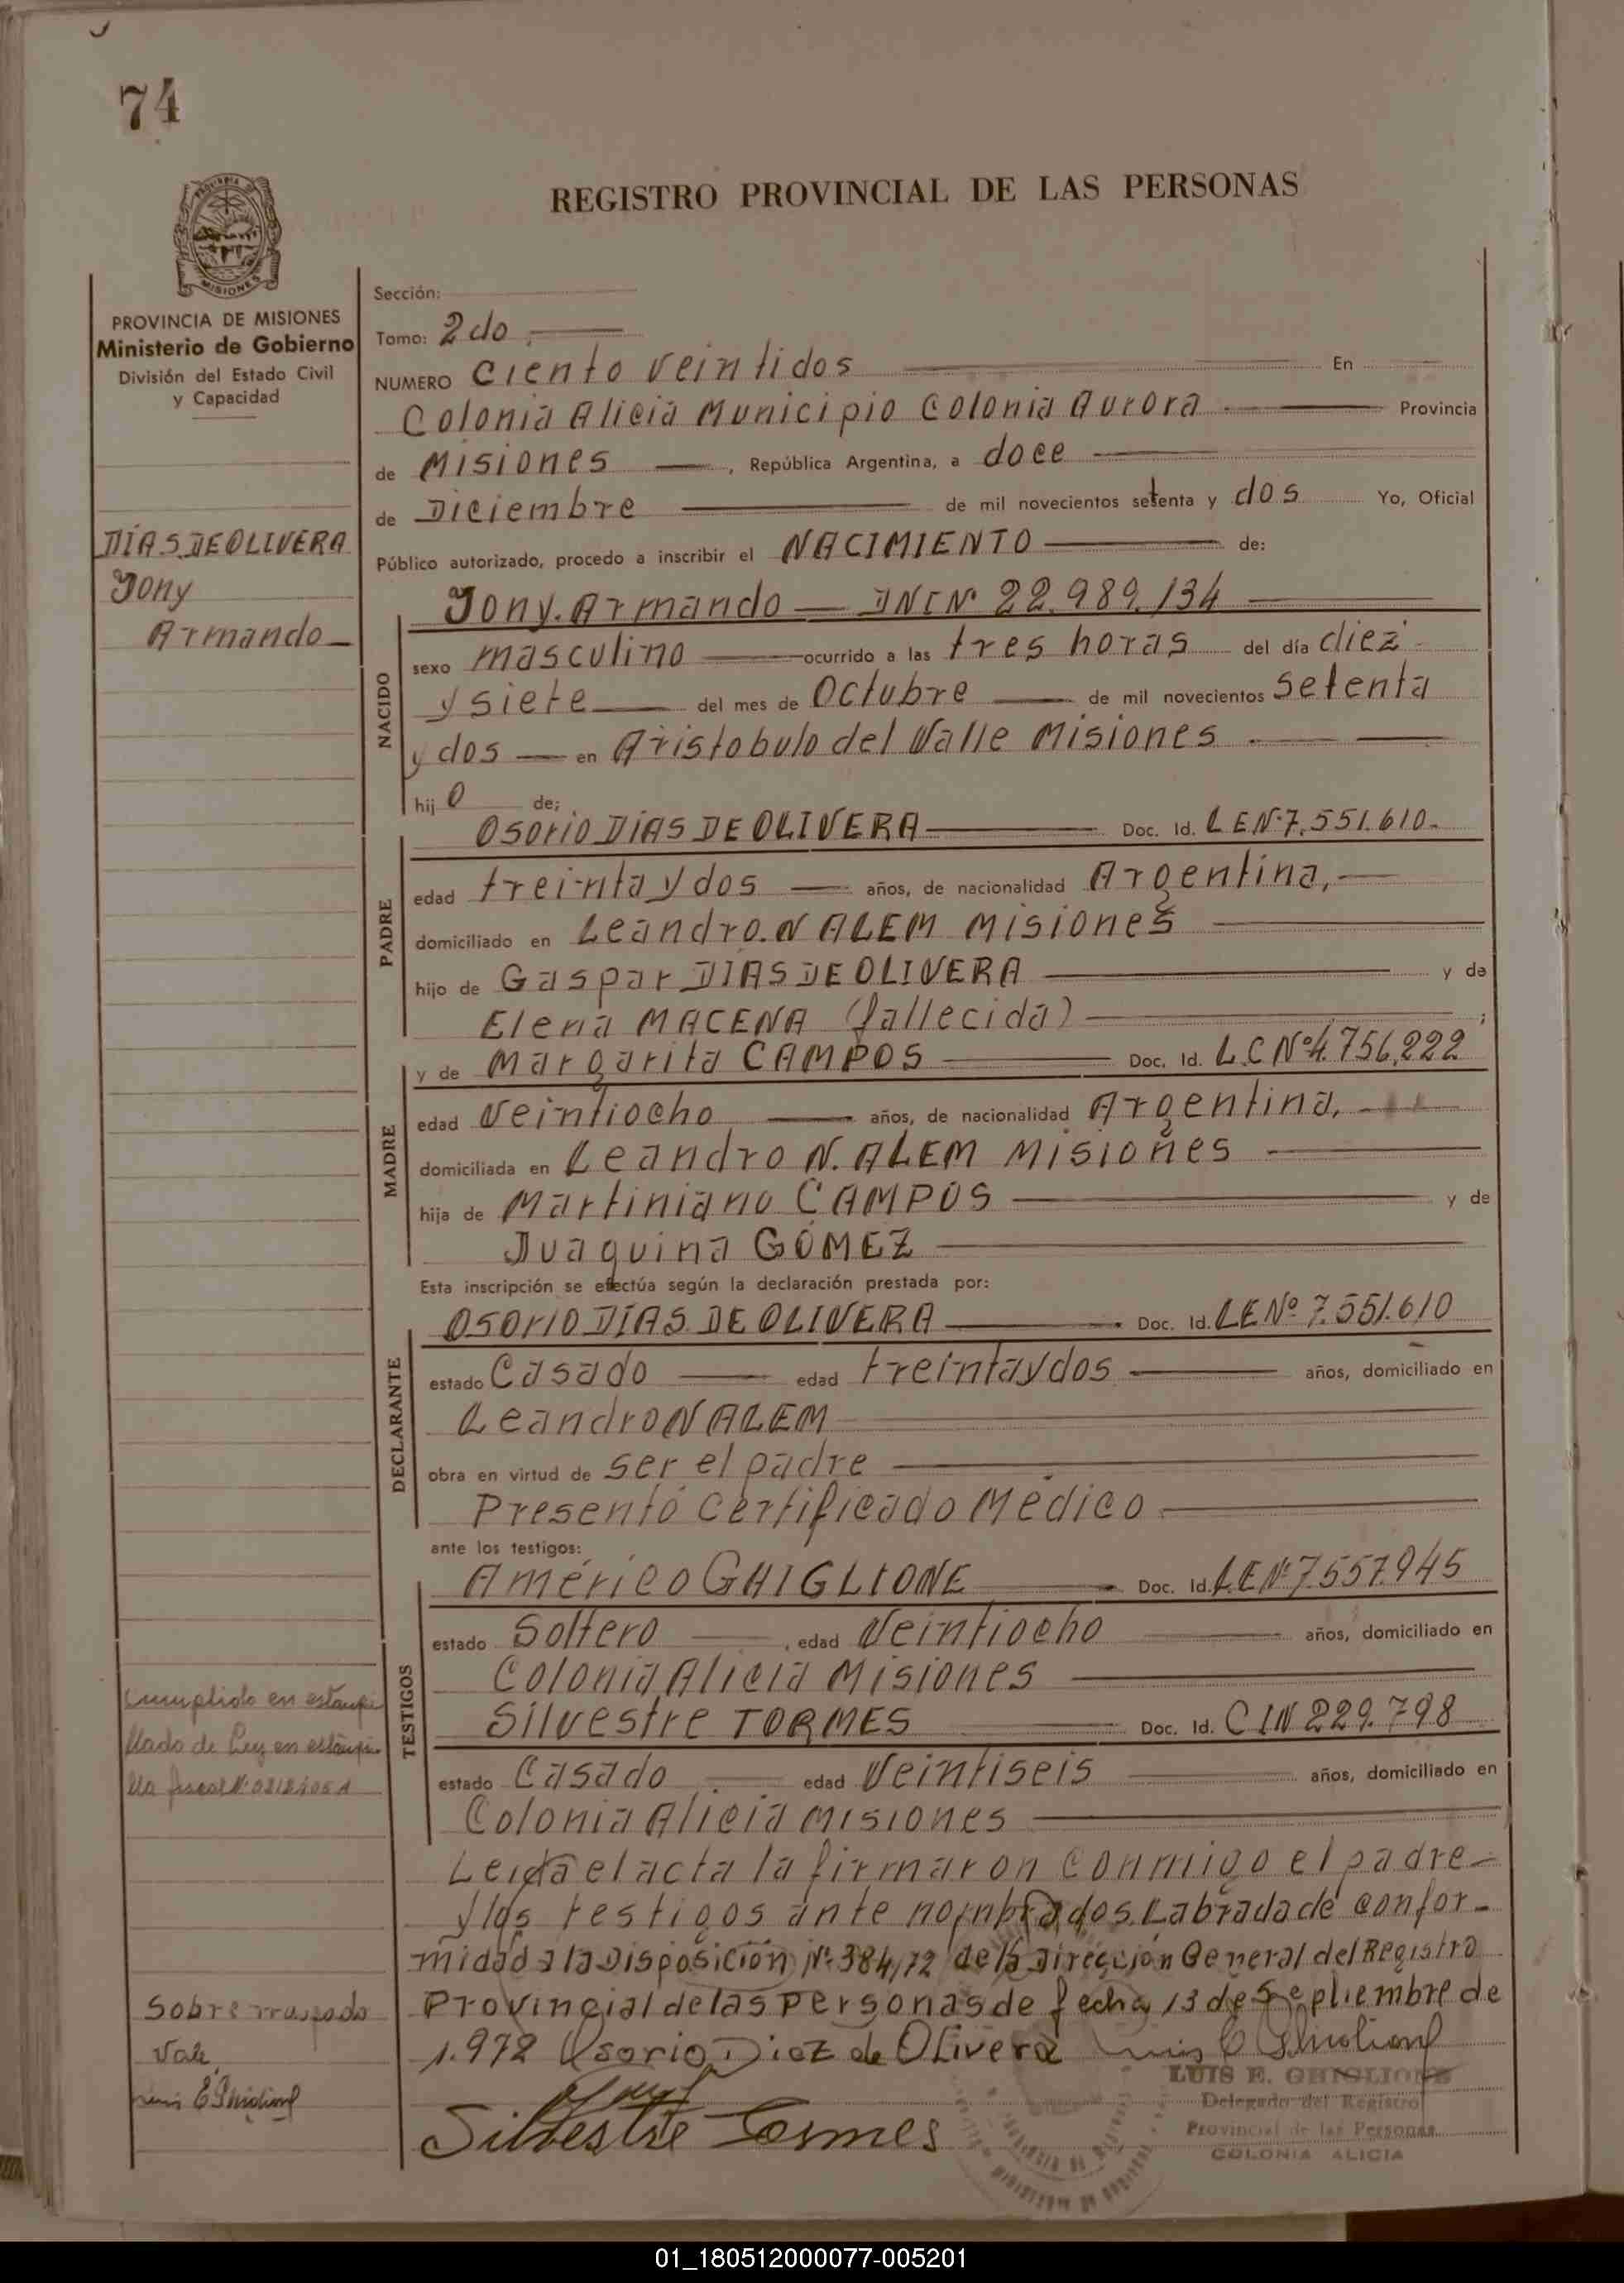 74
REGISTRO PROVINCIAL DE LAS PERSONAS
MISIONES
PROVINCIA DE MISIONES
Ministerio de Gobierno
División del Estado Civil
y Capacidad
DÍAS DE OLIVERA
Yony
Armando
Sección:
Tomo: 2do
NUMERO Ciento veintidos En
Colonia Alicia Municipio Colonia Aurora Provincia
de Misiones, República Argentina, a doce
de Diciembre de mil novecientos setenta y dos Yo, Oficial
Público autorizado, procedo a inscribir el NACIMIENTO de:
Yony. Armando DNI Nº 22.989.134
NACIDO
sexo masculino ocurrido a las tres horas del día diez
y siete del mes de Octubre de mil novecientos setenta
y dos en Aristobulo del Valle Misiones
hij o de;
PADRE
Osorio DÍAS DE OLIVERA Doc. Id. L E Nº 7.551.610.
edad treinta y dos años, de nacionalidad Argentina,
domiciliado en Leandro. N ALEM Misiones
hijo de Gaspar DIAS DE OLIVERA y de
Elena MACENA (fallecida) ;
MADRE
y de Margarita CAMPOS Doc. Id. L.C Nº 4.756.222
edad Veintiocho años, de nacionalidad Argentina,
domiciliada en Leandro N. ALEM Misiones
hija de Martiniano CAMPOS y de
Juaquina GÓMEZ
Esta inscripción se efectúa según la declaración prestada por:
DECLARANTE
Osorio DÍAS DE OLIVERA Doc. Id. L E Nº 7.551.610
estado Casado edad treinta y dos años, domiciliado en
Leandro N ALEM
obra en virtud de ser el padre
Presentó Certificado Médico
ante los testigos:
TESTIGOS
Américo GHIGLIONE Doc. Id. L.E Nº 7.557.945
estado Soltero, edad Veintiocho años, domiciliado en
Colonia Alicia Misiones
Silvestre TORMES Doc. Id. C I N 229.798
estado Casado edad Veintiseis años, domiciliado en
Colonia Alicia Misiones
Leida el acta la firmaron conmigo el padre
y los testigos ante nombrados. Labrada de confor-
midad a la Disposición Nº 384/72 de la Dirección General del Registro
Provincial de las Personas de fecha 13 de Septiembre de
1.972 Osorio Diaz de Olivera Luis E Ghiglione
Silvestre Tormes
LUIS E. GHIGLIONE
Delegado del Registro
Provincial de las Personas
COLONIA ALICIA
Cumplido en estampi
llado de Ley en estampi
lla fiscal Nº
Sobre raspado
Vale
Luis E Ghiglione
01_180512000077-005201